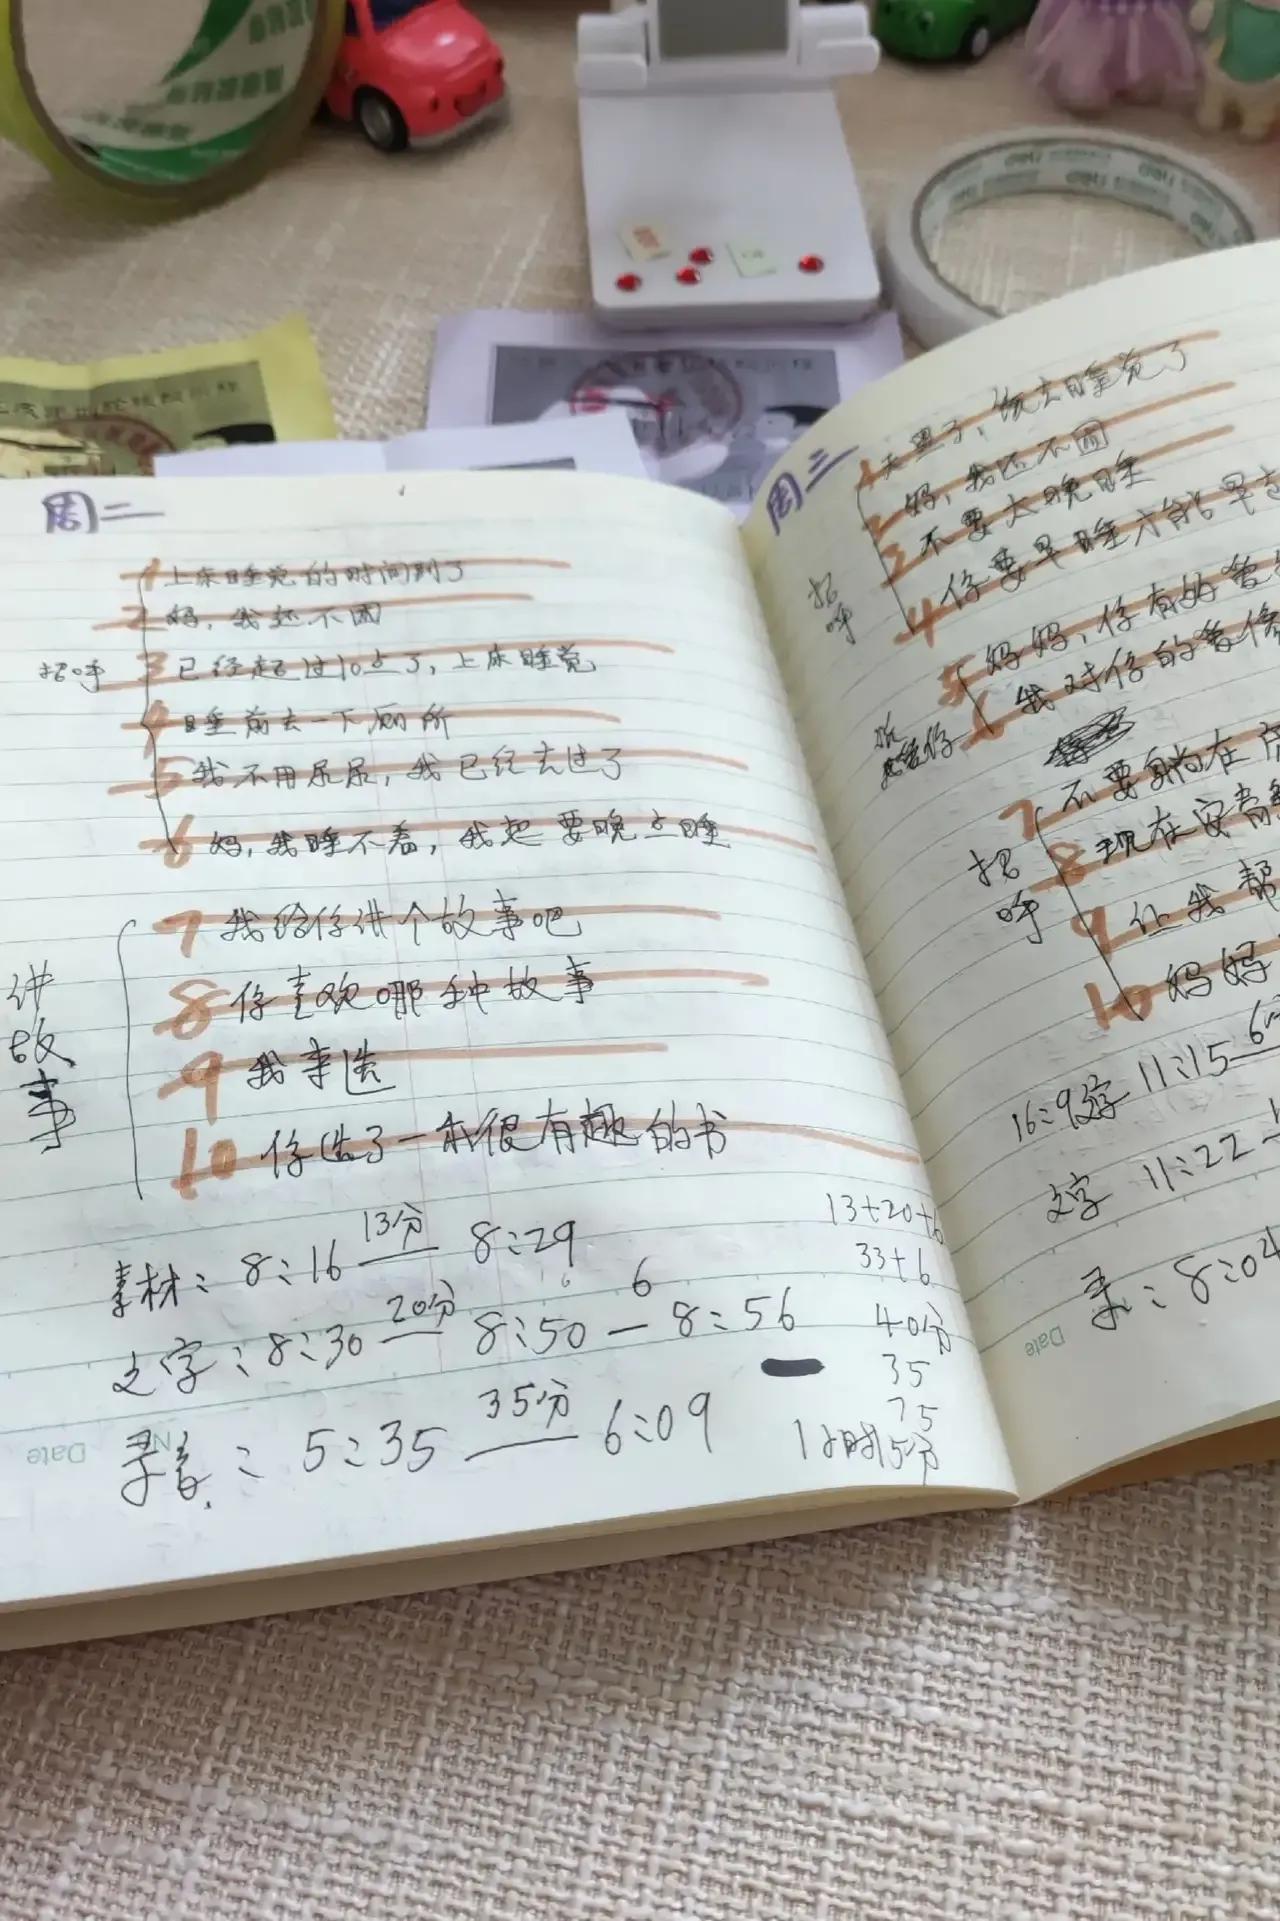 周二
招呼
1 上床睡觉的时间到了
2 妈,我还不困
3 已经超过10点了,上床睡觉
4 睡前去一下厕所
5 我不用尿尿,我已经去过了
6 妈,我睡不着,我想要晚点睡
讲故事
7 我给你讲个故事吧
8 你喜欢哪种故事
9 我来选
10 你选了一本很有趣的书
素材:8:16 13分 8:29
文字:8:30 20分 8:50 — 6 8:56
录音:5:35 35分 6:09
13+20+6
33+6
40分
35
75
1小时15分
Date
周三
招呼
1 天黑了,该去睡觉了
2 妈,我还不困
3 不要太晚睡
4 你要早睡才能早
5 妈妈,你有的
6 我对你的爱像
招呼
7 不要躺在
8 现在
9 让我帮
10 妈妈
11:15
文字 11:22
录:8:04
Date